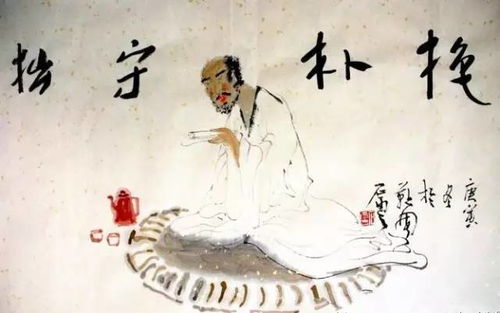 抱朴守拙
庚寅
冬
於